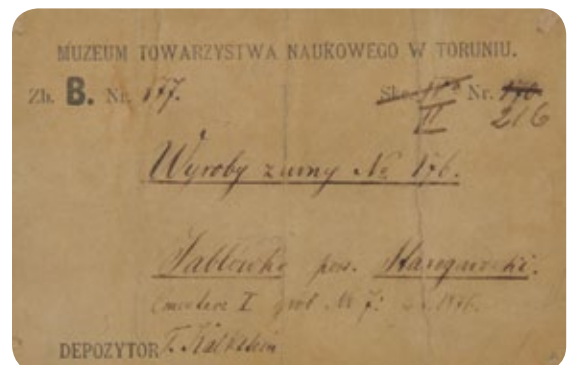 MUZEUM TOWARZYSTWA NAUKOWEGO W TORUNIU.
Zb. B. Nr. 177. Nr. 176
II 216
Wyroby z urny No 176.
Jabłówko pow. Stargardzki.
Cmentarz I grób No 7.
DEPOZYTOR T. Kalkstein